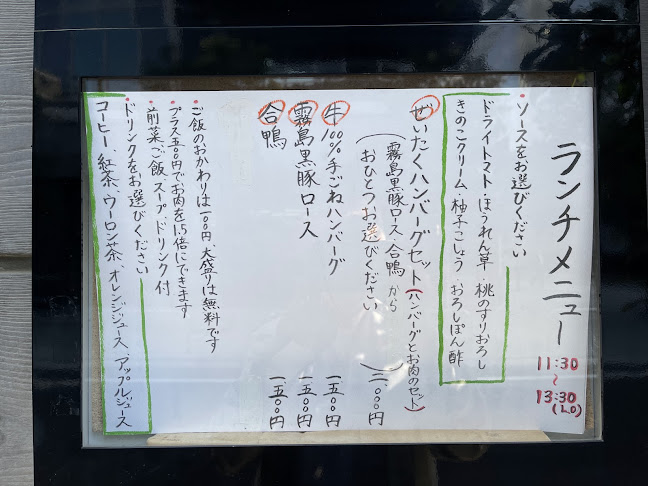 ランチメニュー
11:30
~
13:30
(L.O)
・ソースをお選びください
ドライトマト・ほうれん草・桃のすりおろし
きのこクリーム・柚子こしょう・おろしぽん酢
ぜいたくハンバーグセット(ハンバーグとお肉のセット)
(霧島黒豚ロース・合鴨から
おひとつお選びください) 二〇〇〇円
牛100%手ごねハンバーグ 一五〇〇円
霧島黒豚ロース 一五〇〇円
合鴨 一五〇〇円
・ご飯のおかわりは一〇〇円、大盛りは無料です
・プラス五〇〇円でお肉を1.5倍にできます
・前菜、ご飯、スープ、ドリンク付
・ドリンクをお選びください
コーヒー、紅茶、ウーロン茶、オレンジジュース、アップルジュース